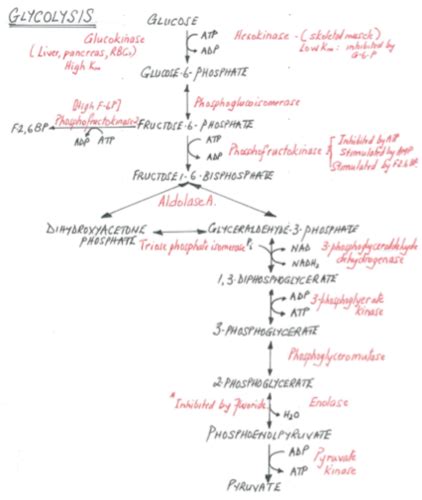 GLYCOLYSIS
GLUCOSE
Glucokinase
(Liver, pancreas, RBCs)
High Km
ATP
ADP
Hexokinase - (skeletal muscle)
Low Km: inhibited by
G-6-P
GLUCOSE-6-PHOSPHATE
Phosphoglucoisomerase
[High F-6P]
Phosphofructokinase2
F2,6BP
ADP ATP
FRUCTOSE-6-PHOSPHATE
ATP
ADP
Phosphofructokinase 1
Inhibited by ATP
Stimulated by AMP
Stimulated by F2,6BP
FRUCTOSE 1-6-BISPHOSPHATE
Aldolase A.
DIHYDROXYACETONE
PHOSPHATE
Triose phosphate isomerase
GLYCERALDEHYDE-3-PHOSPHATE
Pi
NAD
NADH2
3-phosphoglyceraldehyde
dehydrogenase
1,3-DIPHOSPHOGLYCERATE
ADP
ATP
3-phosphoglycerate
kinase
3-PHOSPHOGLYCERATE
Phosphoglyceromutase
2-PHOSPHOGLYCERATE
*Inhibited by fluoride
Enolase
H2O
PHOSPHOENOLPYRUVATE
ADP
ATP
Pyruvate
kinase
PYRUVATE